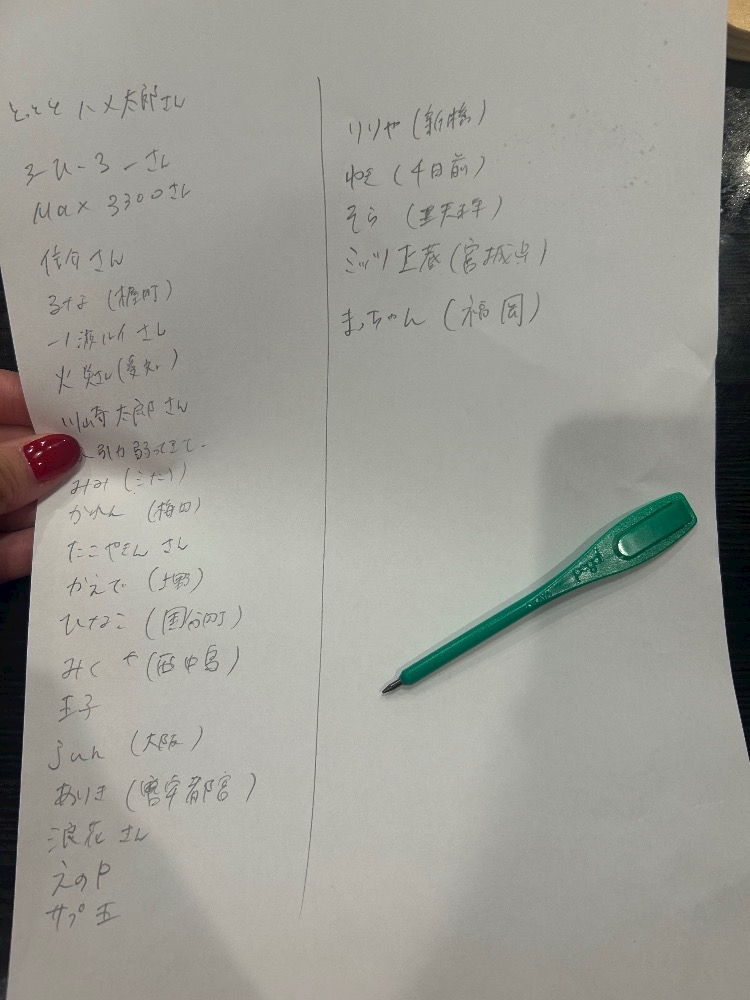 とっとこハメ太郎さん
ヨーヒーヨーさん
Max 3300さん
信介さん
るな（裡町）
一ノ瀬ルイさん
火災さん（愛知）
川崎太郎さん
引力弱ってきて
みみ（ミナミ）
かれん（梅田）
たこやきんさん
かえで（上野）
ひなこ（国分町）
みくや（西中島）
王子
Jun（大阪）
ありさ（宇都宮）
浪花さん
えのP
サブ王
りりや（新橋）
ゆき（4日前）
そら（天王寺）
ミッツ正蔵（宮城県）
まっちゃん（福岡）